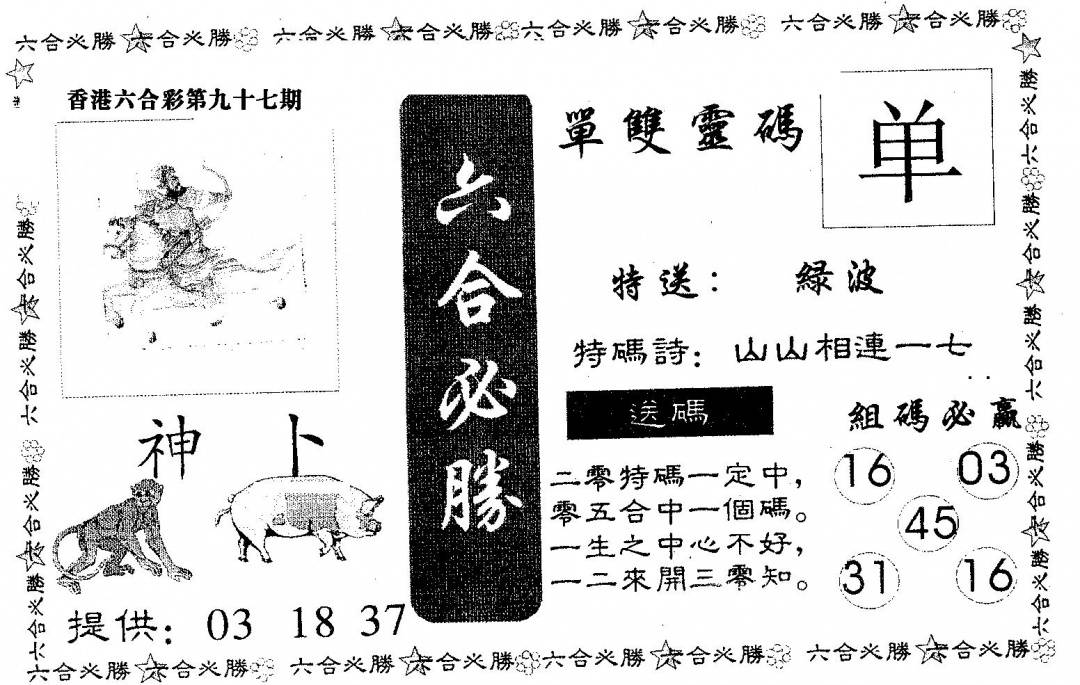 六合必勝 六合必勝 六合必勝 六合必勝 六合必勝 六合必勝 六合必勝 六合必勝
香港六合彩第九十七期
神卜
提供：03 18 37
六合必勝
單雙靈碼
单
特送：綠波
特碼詩：山山相連一七
送碼
二零特碼一定中，
零五合中一個碼。
一生之中心不好，
一二來開三零知。
組碼必贏
16 03
45
31 16
六合必勝 六合必勝 六合必勝
六合必勝 六合必勝 六合必勝
六合必勝 六合必勝 六合必勝 六合必勝 六合必勝 六合必勝 六合必勝 六合必勝